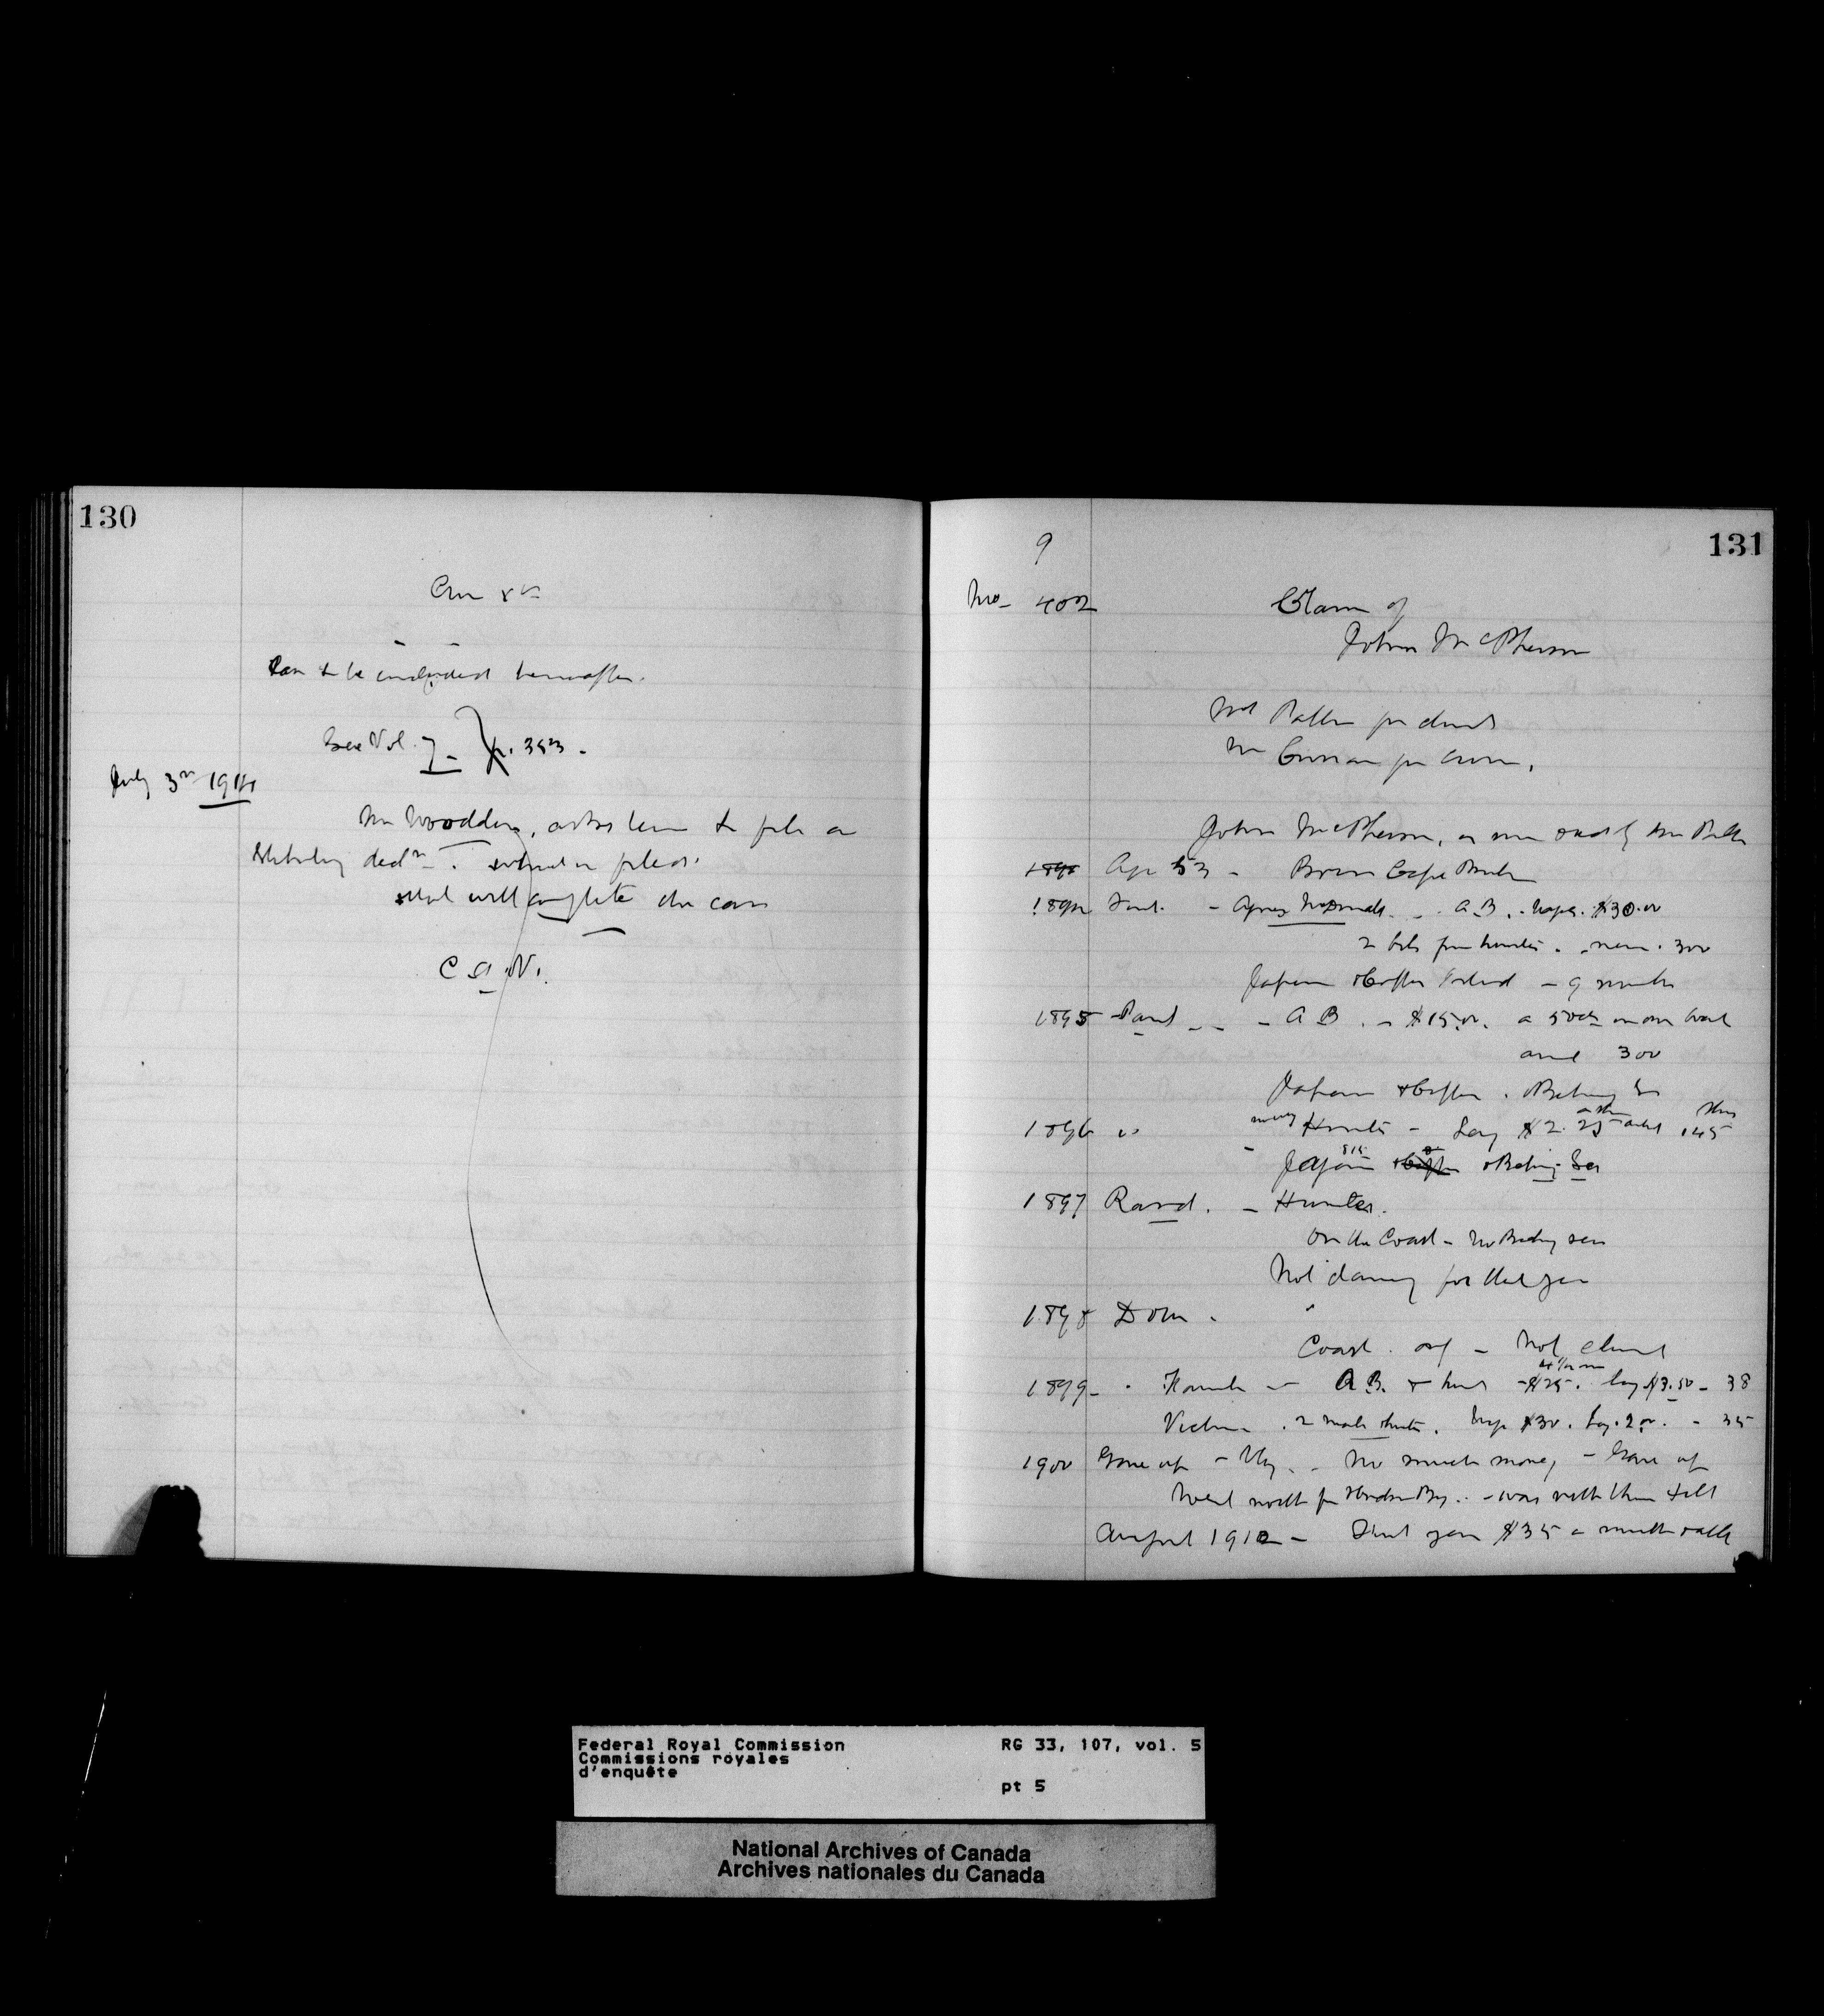 130
Case to be included hereafter.
See Vol. 7 - p. 353 -
July 3rd 1914
Mr Woodden, asks leave to file a
Statutory decln . which is filed.
that will complete the case
C A V.
131
9
No- 402
Claim of
John McPherson
Mr Curran for Crown.
John McPherson,
1890 Age 53 - Born Cape Breton
- Agnes McDonald. - A.B. - wages. $30.00
2 bts from hunters . 300
Japan & Copper Island - 9 months
1895 - A B . - $15.00. a 50cts on own boat
and 300
Japan & Copper . & Behring Sea
1896 " Hunter - Lay $2.25 about 145
Japan & Copper & Behring Sea
1897 Rand. - Hunter.
On the Coast - No Behring sea
Not claiming for that year
1898 Dora . "
Coast . only - Not claimed
1899 - A B. & hunt - $25. lay $3.50 - 38
Victoria . 2 mate & hunter. Wage $30. Lay. 2.00. - 35
1900 Gave up - Why. - No much money - Gave up
Went north for Hudson Bay .. - was with them till
August 1912 - First year $35 a month
Federal Royal Commission
Commissions royales
d'enquête
RG 33, 107, vol. 5
pt 5
National Archives of Canada
Archives nationales du Canada